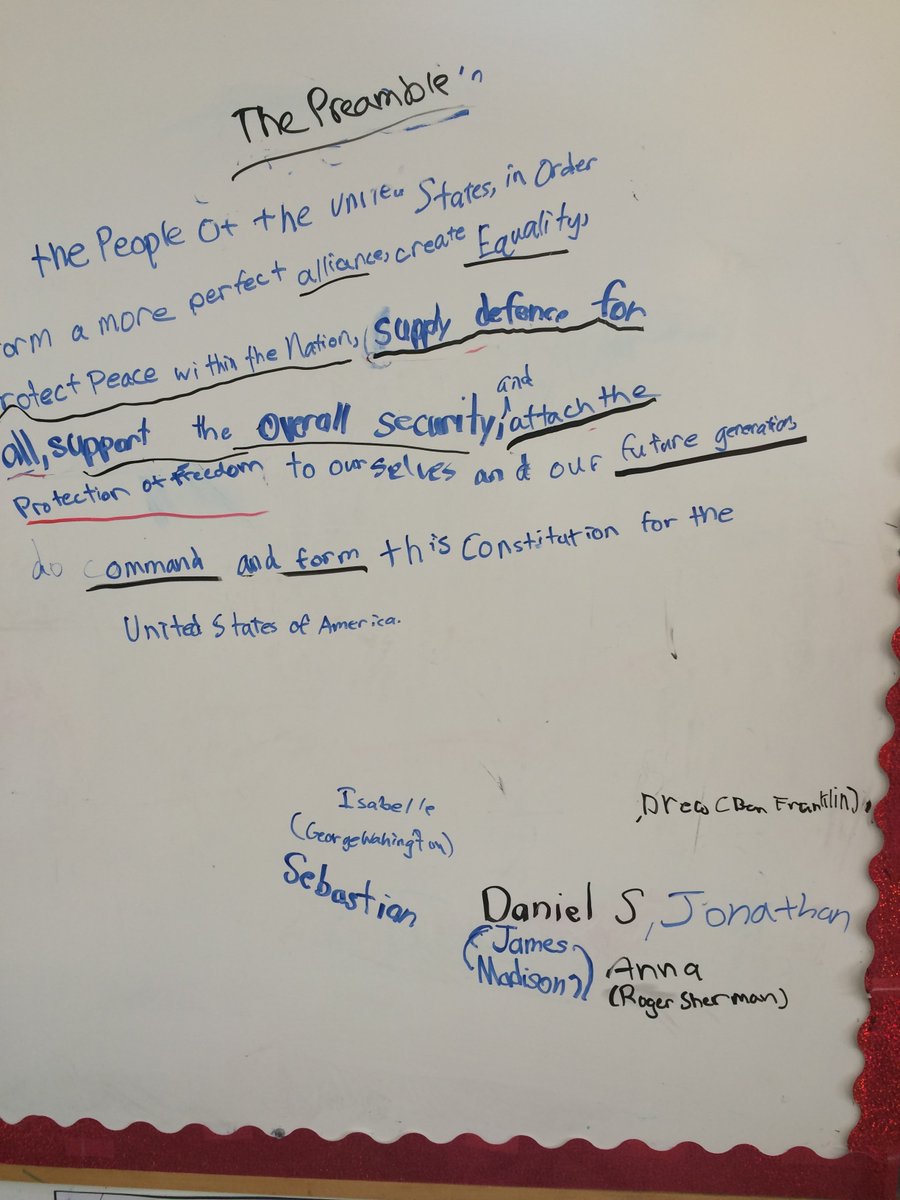 The Preamble
the People of the United States, in Order
orm a more perfect alliance, create Equality,
rotect Peace within the Nation, supply defence for
all, support the overall security, and attach the
Protection of freedom to ourselves and our future generations
do command and form this Constitution for the
United States of America.
Isabelle
(George Wahington)
Sebastian
Drew (Ben Franklin)
Daniel S, Jonathan
(James Madison)
Anna
(Roger Sherman)